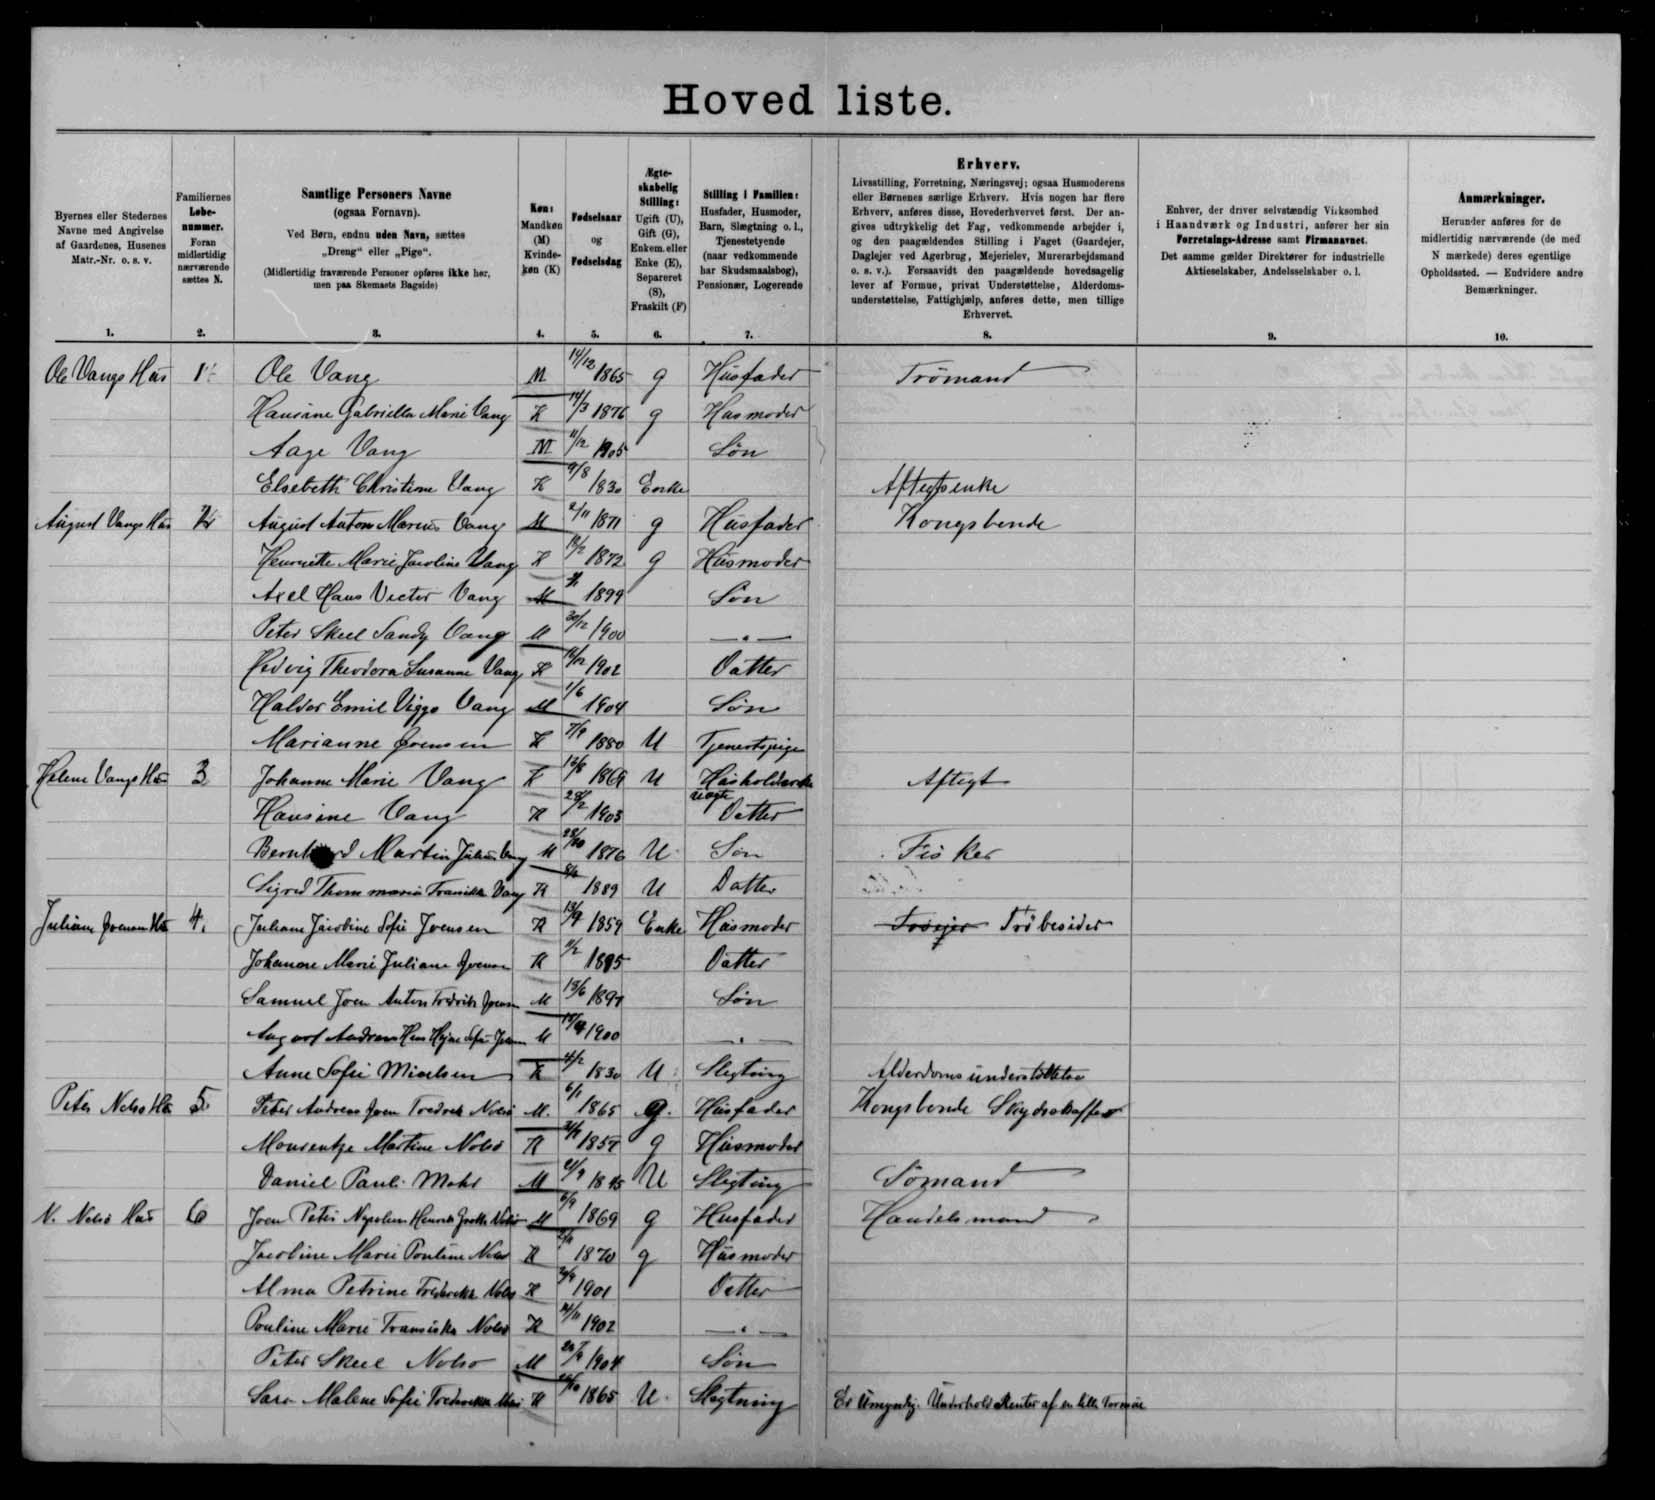 Hoved liste.
Byernes eller Stedernes Navne med Angivelse af Gaardenes, Husenes Matr.-Nr. o. s. v.
Familiernes Løbenummer. Foran midlertidig nærværende sættes N.
Samtlige Personers Navne (ogsaa Fornavn). Ved Børn, endnu uden Navn, sættes „Dreng“ eller „Pige“. (Midlertidig fraværende Personer opføres ikke her, men paa Skemaets Bagside)
Køn: Mandkøn (M) Kvindekøn (K)
Fødselsaar og Fødselsdag
Ægteskabelig Stilling: Ugift (U), Gift (G), Enkem. eller Enke (E), Separeret (S), Fraskilt (F)
Stilling i Familien: Husfader, Husmoder, Barn, Slægtning o. l., Tjenestetyende (naar vedkommende har Skudsmaalsbog), Pensionær, Logerende
Erhverv. Livsstilling, Forretning, Næringsvej; ogsaa Husmoderens eller Børnenes særlige Erhverv. Hvis nogen har flere Erhverv, anføres disse, Hovederhvervet først. Der angives udtrykkelig det Fag, vedkommende arbejder i, og den paagældendes Stilling i Faget (Gaardejer, Daglejer ved Agerbrug, Mejerielev, Murerarbejdsmand o. s. v.). Forsaavidt den paagældende hovedsagelig lever af Formue, privat Understøttelse, Alderdomsunderstøttelse, Fattighjælp, anføres dette, men tillige Erhvervet.
Enhver, der driver selvstændig Virksomhed i Haandværk og Industri, anfører her sin Forretnings-Adresse samt Firmanavnet. Det samme gælder Direktører for industrielle Aktieselskaber, Andelsselskaber o. l.
Anmærkninger. Herunder anføres for de midlertidig nærværende (de med N mærkede) deres egentlige Opholdssted. — Endvidere andre Bemærkninger.
1. 2. 3. 4. 5. 6. 7. 8. 9. 10.
Ole Vangs Hus 1 Ole Vang M 14/12 1865 g Husfader Trømand
Hansine Gabriella Marie Vang K 14/3 1876 g Husmoder
Aage Vang M 11/12 1905 Søn
Elsebeth Christiane Vang K 9/8 1830 Enke Aftegtsenke
August Vangs Hus 2 August Anton Marius Vang M 2/11 1871 g Husfader Kongsbonde
Henriette Marie Jacobine Vang K 1872 g Husmoder
Axel Hans Victor Vang M 1899 Søn
Peter Skeel Sandy Vang M 20/12 1900 — " —
Hedvig Theodora Susanne Vang K 1902 Datter
Haldor Emil Viggo Vang M 1/6 1904 Søn
Marianne Joensen K 7/9 1880 U Tjenestpige
Helene Vangs Hus 3 Johanne Marie Vang K 12/8 1869 U Husholderske Aftegt
Hansine Vang K 28/2 1903 uægte Datter
Bernhard Martin Julius Vang M 28/10 1876 U Søn Fisker
Sigred Thommasia Vang K 1889 U Datter
Juliane Joensens Hus 4. Juliane Jacobine Sofie Joensen K 13/9 1859 Enke Husmoder Trøbesider
Johanne Marie Juliane Joensen K 11/2 1895 Datter
Samuel Joen Anton Fredrik Joensen M 13/6 1897 Søn
August Andreas Hans M 1900 — " —
Anne Sofie Mickelsen K 4/2 1830 U Slegtning Alderdomsunderstøttelse
Peter Nolsø Hus 5. Peter Andreas Joen Fredrek Nolsø M. 6/1 1865 g. Husfader Kongsbonde Skydsskaffer
Martine Nolsø K 1857 g Husmoder
Daniel Pauli Mohr M 21/9 1895 U Slegtning Sømand
N. Nolsø Hus 6 Joen Peter Napoleon Henrik Nolsø M 6/9 1869 g Husfader Handelsmand
Jacobine Marie Pouline Nolsø K 1870 g Husmoder
Alma Petrine Frederekke Nolsø K 1901 Datter
Pouline Marie Fransiska Nolsø K 1902 — " —
Peter Skeel Nolsø M 1904 Søn
Sara Malene Sofie Frederekke K 1865 U. Slegtning Er Umyndig. Underhold Renter af en lille Formue